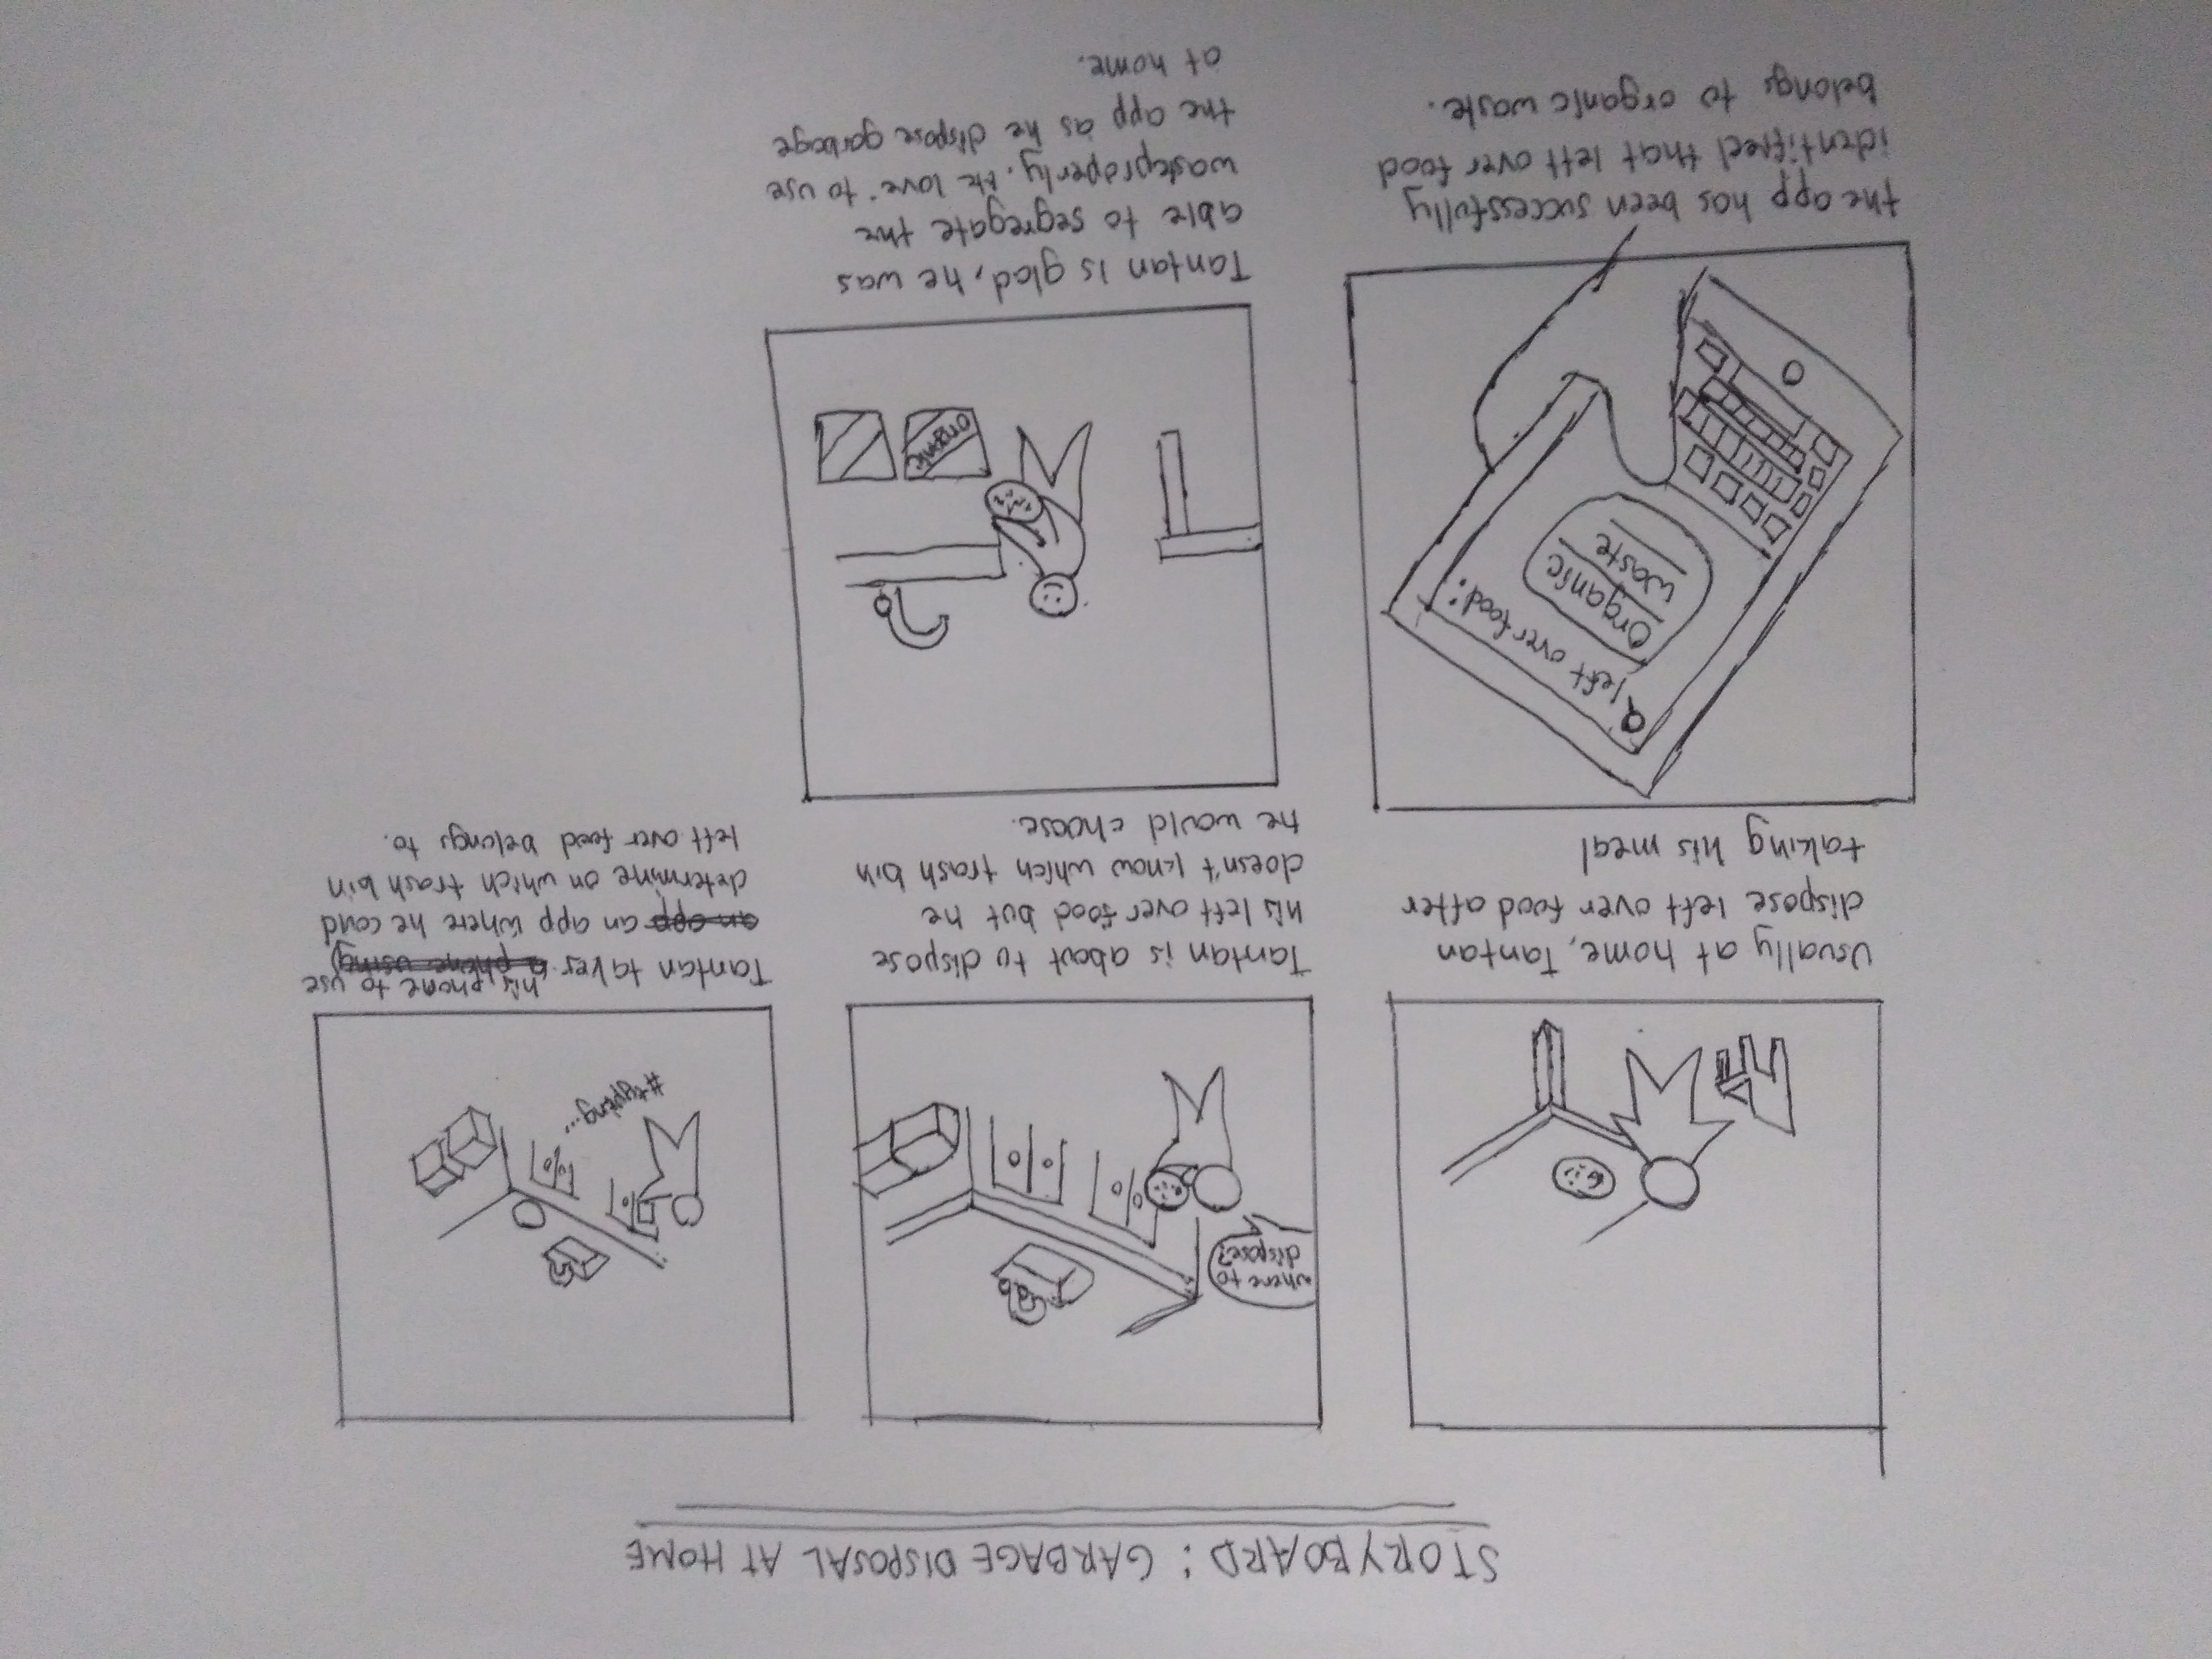 STORYBOARD: GARBAGE DISPOSAL AT HOME
Usually at home, Tantan
dispose left over food after
taking his meal
where to
dispose?
Tantan is about to dispose
his left over food but he
doesn't know which trash bin
he would choose.
#typing...
Tantan takes his phone to use
a phone using
an app an app where he could
determine on which trash bin
left over food belongs to.
left over food:
Organic
waste
the app has been successfully
identified that left over food
belongs to organic waste.
organic
Tantan is glad, he was
able to segregate the
waste properly. He love to use
the app as he dispose garbage
at home.